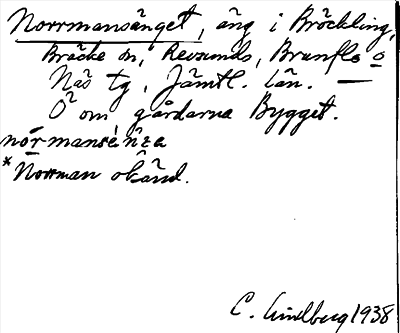 Norrmansänget, äng i Bräckling,
Bräcke sn, Revsunds, Brunflo o
Näs tg, Jämtl. län. —
Ö om gårdarna Bygget.
*Norrman okänd.
C. Lindberg 1938